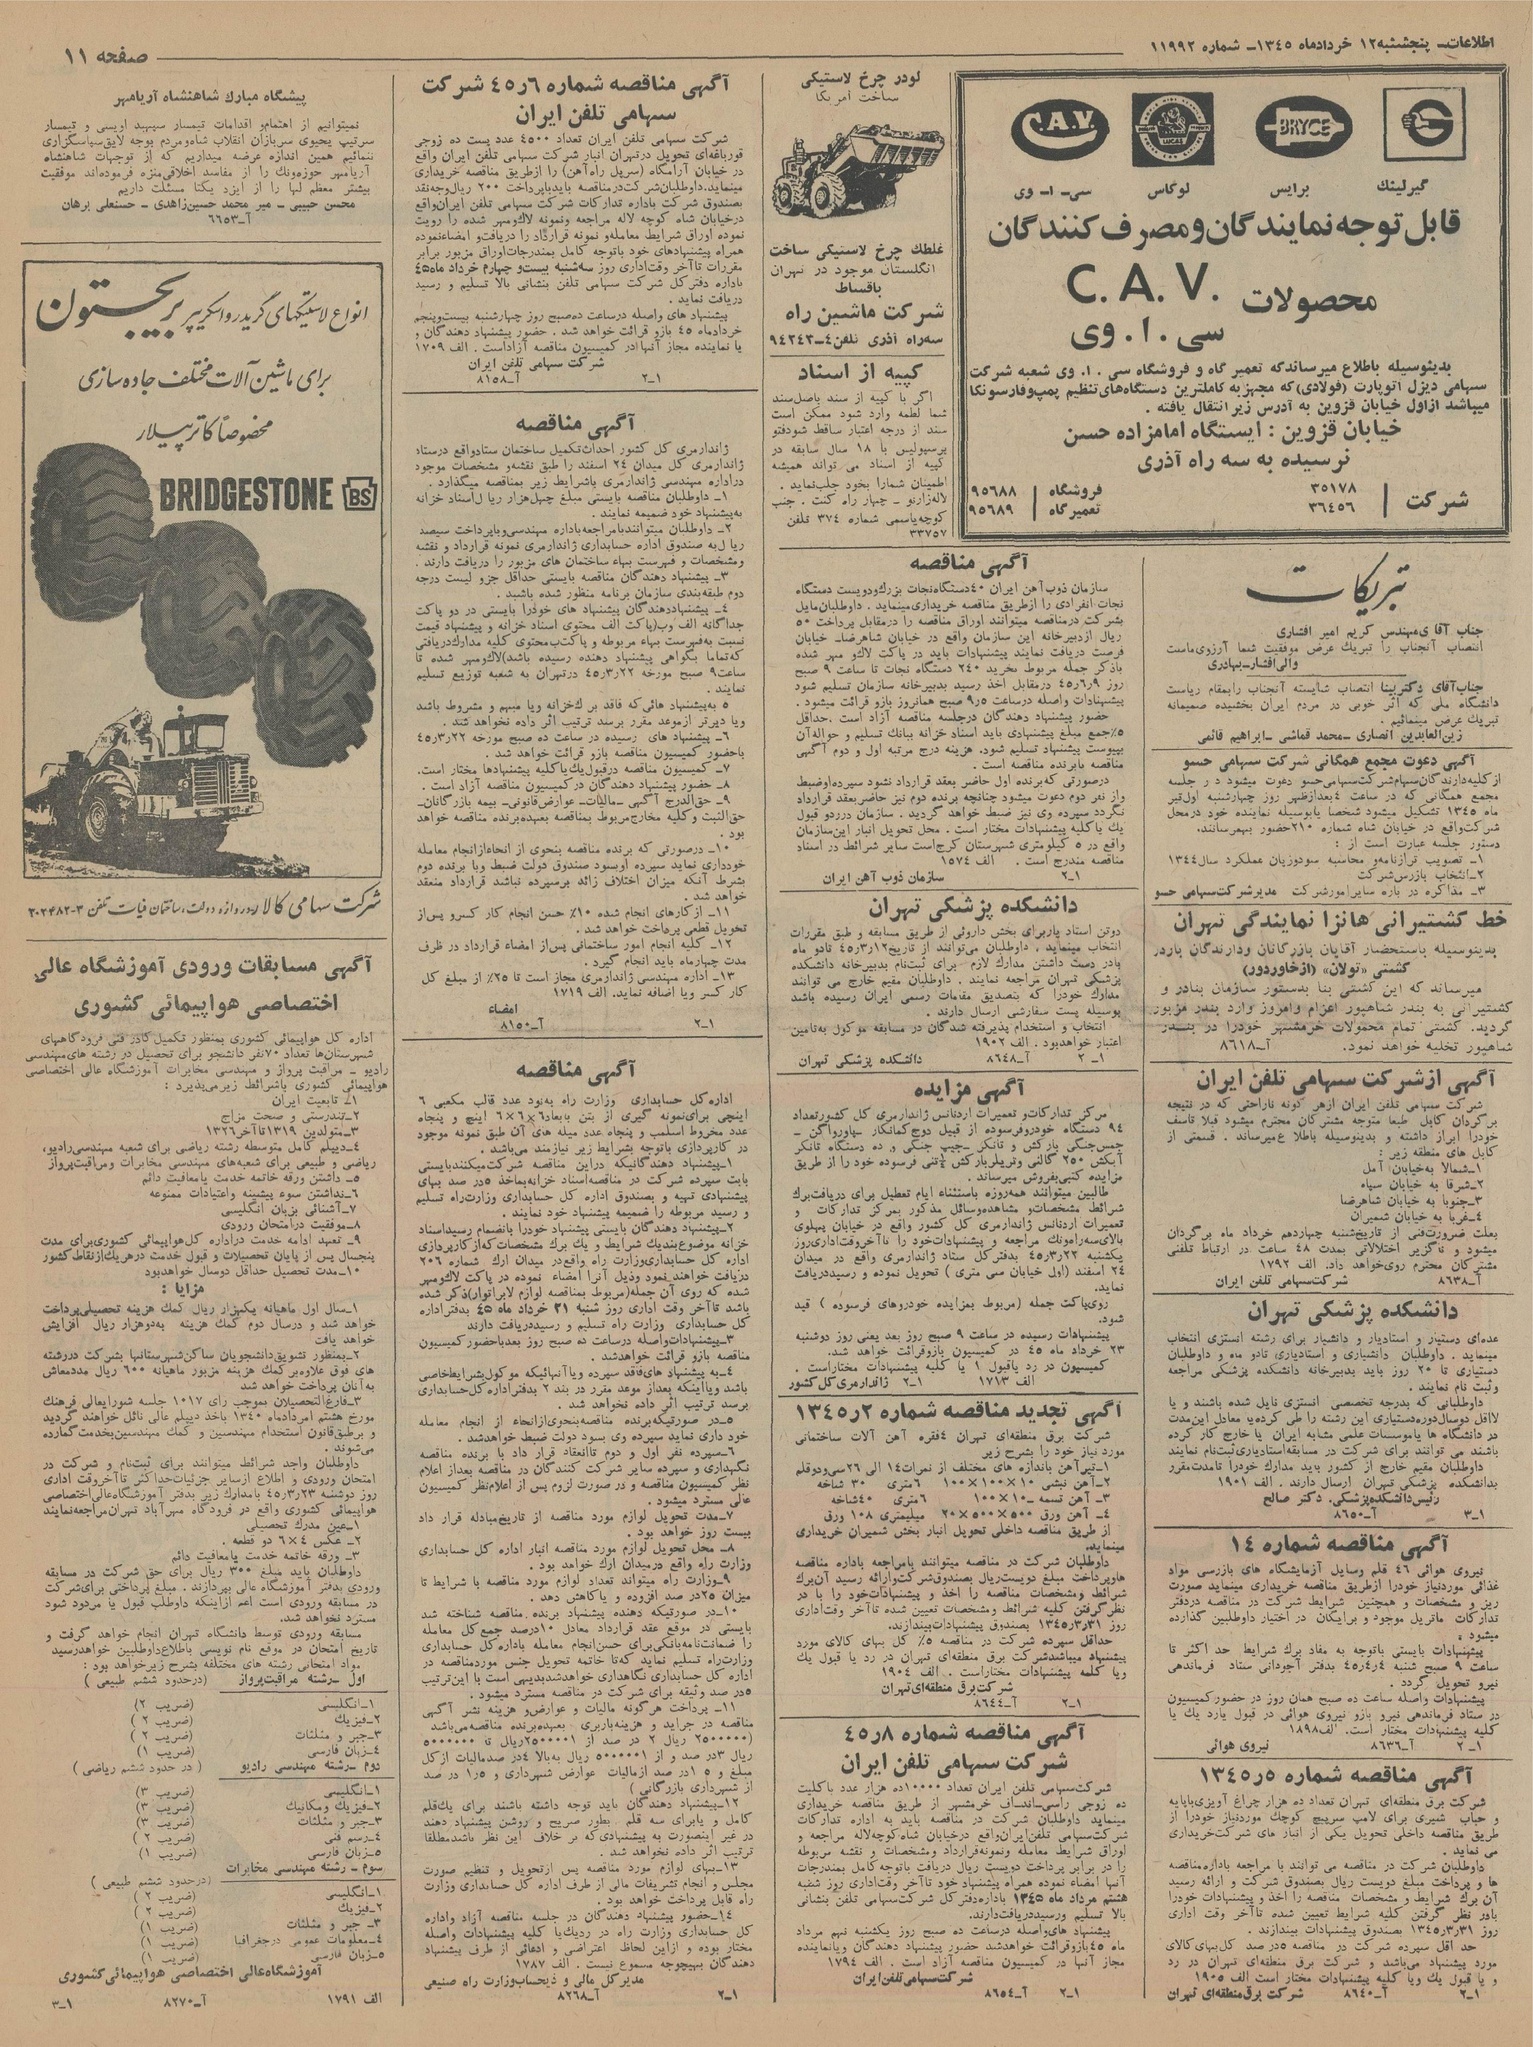 اطلاعات- پنجشنبه ۱۲ خردادماه ۱۳۴۵- شماره ۱۱۹۹۲
صفحه ۱۱
C.A.V.
LUCAS
BRYCE
G
گیرلینك
برایس
لوگاس
سی- ا- وی
قابل توجه نمایندگان و مصرف کنندگان
محصولات C.A.V.
سی . ا . وی
بدینوسیله باطلاع میرساندکه تعمیر گاه و فروشگاه سی . ا. وی شعبه شرکت
سهامی دیزل اتوپارت (فولادی) که مجهز به کاملترین دستگاه های تنظیم پمپ وفارسونکا
میباشد از اول خیابان قزوین به آدرس زیر انتقال یافته .
خیابان قزوین : ایستگاه امامزاده حسن
نرسیده به سه راه آذری
شرکت ۳۵۱۷۸ ۳۶۴۵۶
فروشگاه ۹۵۶۸۸
تعمیرگاه ۹۵۶۸۹
تبریکات
جناب آقای مهندس کریم امیر افشاری
انتصاب آنجناب را تبریك عرض موفقیت شما آرزوی ماست
والی افشار-بهادری
جناب آقای دکتر بینا انتصاب شایسته آنجناب رابمقام ریاست
دانشگاه ملی که اثر خوبی در مردم ایران بخشیده صمیمانه
تبریك عرض مینمائیم .
زین العابدین انصاری -محمد قماشی -ابراهیم قائمی
آگهی دعوت مجمع همگانی شرکت سهامی حسو
از کلیه دارندگان سهام شرکت سهامی حسو دعوت میشود در جلسه
مجمع همگانی که در ساعت ٤ بعدازظهر روز چهارشنبه اول تیر
ماه ۱۳۴۵ تشکیل میشود شخصا یابوسیله نماینده خود در محل
شرکت واقع در خیابان شاه شماره ۲۱۰ حضور بهمرسانند.
دستور جلسه عبارت است از :
۱- تصویب ترازنامه و محاسبه سودوزیان عملکرد سال ۱۳۴۴
۲-انتخاب بازرس شرکت
۳- مذاکره در باره سایر امورشرکت مدیر شرکت سهامی حسو
خط کشتیرانی هانزا نمایندگی تهران
بدینوسیله باستحضار آقایان بازرگانان ودارندگان بار در
کشتی «تولان» (ازخاوردور)
میرساند که این کشتی بنا بدستور سازمان بنادر و
کشتیرانی به بندر شاهپور اعزام وامروز وارد بندر مزبور
گردید. کشتی تمام محمولات خرمشهر خودرا در بندر
شاهپور تخلیه خواهد نمود. آ-۸۶۱۸
آگهی از شرکت سهامی تلفن ایران
شرکت سهامی تلفن ایران از هر گونه ناراحتی که در نتیجه
برگردان کابل طبعا متوجه مشترکان محترم میشود قبلا تاسف
خودرا ابراز داشته و بدینوسیله باطلاع میرساند . قسمتی از
کابل های منطقه زیر :
۱-شمالا به خیابان آمل
۲-شرقا به خیابان سپاه
۳-جنوبا به خیابان شاهرضا
۴-غربا به خیابان شمیران
بعلت ضرورت فنی از تاریخ شنبه چهاردهم خرداد ماه برگردان
میشود و ناگزیر اختلالاتی بمدت ۴۸ ساعت در ارتباط تلفنی
مشترکان محترم روی خواهد داد. الف ۱۷۹۲
آ-۸۶۳۸ شرکت سهامی تلفن ایران
دانشکده پزشکی تهران
عده ای دستیار و استادیار و دانشیار برای رشته انستزی انتخاب
مینماید . داوطلبان دانشیاری و استادیاری تادو ماه و داوطلبان
دستیاری تا ۲۰ روز باید بدبیرخانه دانشکده پزشکی مراجعه
وثبت نام نمایند .
داوطلبانی که بدرجه تخصصی انستزی نایل شده باشند و یا
لااقل دوسال دوره دستیاری این رشته را طی کرده یا معادل این مدت
در دانشگاه ها یا موسسات علمی مشابه ایران یا خارج کار کرده
باشند می توانند برای شرکت در مسابقه استادیاری ثبت نام نمایند
داوطلبان مقیم خارج از کشور باید مدارك خودرا تامدت مقرر
بدانشکده پزشکی تهران ارسال دارند . الف ۱۹۰۱
رئیس دانشکده پزشکی. دکتر صالح
۳-۱ آ-۸۶۵۰
آگهی مناقصه شماره ۱۴
نیروی هوائی ۴۶ قلم وسایل آزمایشگاه های بازرسی مواد
غذائی موردنیاز خودرا ازطریق مناقصه خریداری مینماید صورت
ریز و مشخصات و همچنین شرایط شرکت در مناقصه دردفتر
تدارکات ماتریل موجود و برایگان در اختیار داوطلبین گذارده
میشود .
پیشنهادات بایستی باتوجه به مفاد برك شرایط حد اکثر تا
ساعت ۹ صبح شنبه ۴ر۴ر۴۵ بدفتر آجودانی ستاد فرماندهی
نیرو تحویل گردد .
پیشنهادات واصله ساعت ده صبح همان روز در حضور کمیسیون
در ستاد فرماندهی نیرو بازو نیروی هوائی در قبول یارد یك یا
کلیه پیشنهادات مختار است. الف۱۸۹۸
۲-۱ آ-۸۶۳۶ نیروی هوائی
آگهی مناقصه شماره ۵ر۱۳۴۵
شرکت برق منطقه ای تهران تعداد ده هزار چراغ آویزی باپایه
و حباب شیری برای لامپ سرپیچ کوچك موردنیاز خودرا از
طریق مناقصه داخلی تحویل یکی از انبار های شرکت خریداری
می نماید .
داوطلبان شرکت در مناقصه می توانند با مراجعه باداره مناقصه
ها و پرداخت مبلغ دویست ریال بصندوق شرکت و ارائه رسید
آن برك شرایط و مشخصات مناقصه را اخذ و پیشنهادات خودرا
باور نظر گرفتن کلیه شرایط تعیین شده تاآخر وقت اداری
روز ۳۱ر۳ر۱۳۴۵ بصندوق پیشنهادات بیندازند.
حد اقل سپرده شرکت در مناقصه ۵در صد کل بهای کالای
مورد پیشنهاد می باشد و شرکت برق منطقه ای تهران در رد
و یا قبول یك ویا کلیه پیشنهادات مختار است الف ۱۹۰۵
۲-۱ آ-۸۶۴۰ شرکت برق منطقه ای تهران
لودر چرخ لاستیکی
ساخت امریکا
غلطك چرخ لاستیکی ساخت
انگلستان موجود در تهران
باقساط
شرکت ماشین راه
سه راه آذری تلفن ۴-۹۴۲۴۳
کپیه از اسناد
اگر با کپیه از سند باصل سند
شما لطمه وارد شود ممکن است
سند از درجه اعتبار ساقط شود فتو
پرسپولیس با ۱۸ سال سابقه در
کپیه از اسناد می تواند همیشه
اطمینان شمارا بخود جلب نماید .
لاله زارنو - چهار راه کنت . جنب
کوچه یاسمی شماره ۳۷۴ تلفن
۳۳۷۵۷
آگهی مناقصه
سازمان ذوب آهن ایران ۴۰دستگاه نجات بزرك و دویست دستگاه
نجات انفرادی را ازطریق مناقصه خریداری مینماید . داوطلبان مایل
بشرکت درمناقصه میتوانند اوراق مناقصه را درمقابل پرداخت ۵۰
ریال ازدبیرخانه این سازمان واقع در خیابان شاهرضا- خیابان
فرصت دریافت نمایند پیشنهادات باید در پاکت لاك و مهر شده
باذکر جمله مربوط بخرید ۲۴۰ دستگاه نجات تا ساعت ۹ صبح
روز ۹ر۶ر۴۵ درمقابل اخذ رسید بدبیرخانه سازمان تسلیم شود
پیشنهادات واصله درساعت ۵ر۹ صبح همانروز بازو قرائت میشود .
حضور پیشنهاد دهندگان درجلسه مناقصه آزاد است .حداقل
۵٪ جمع مبلغ پیشنهادی باید اسناد خزانه ببانك تسلیم و حواله آن
بپیوست پیشنهاد تسلیم شود. هزینه درج مرتبه اول و دوم آگهی
مناقصه بابرنده مناقصه است .
درصورتی که برنده اول حاضر بعقد قرارداد نشود سپرده اوضبط
واز نفر دوم دعوت میشود چنانچه برنده دوم نیز حاضر بعقد قرارداد
نگردد سپرده وی نیز ضبط خواهد گردید . سازمان دررد و قبول
یك یاکلیه پیشنهادات مختار است . محل تحویل انبار این سازمان
واقع در ۵ کیلومتری شهرستان کرج است سایر شرائط در اسناد
مناقصه مندرج است . الف ۱۵۷۴
۲-۱ سازمان ذوب آهن ایران
دانشکده پزشکی تهران
دوتن استاد یاربرای بخش داروئی از طریق مسابقه و طبق مقررات
انتخاب مینماید . داوطلبان می توانند از تاریخ ۱۲ر۳ر۴۵ تادو ماه
بادر دست داشتن مدارك لازم برای ثبت نام بدبیرخانه دانشکده
پزشکی تهران مراجعه نمایند . داوطلبان مقیم خارج می توانند
مدارك خودرا که بتصدیق مقامات رسمی ایران رسیده باشد
بوسیله پست سفارشی ارسال دارند .
انتخاب و استخدام پذیرفته شدگان در مسابقه موکول به تامین
اعتبار خواهدبود . الف ۱۹۰۲
۲-۱ آ-۸۶۴۸ دانشکده پزشکی تهران
آگهی مزایده
مرکز تدارکات و تعمیرات اردنانس ژاندارمری کل کشور تعداد
۹۴ دستگاه خودرو فرسوده از قبیل دوج کمانکار -پاورواگن -
جمس جنگی بارکش و تانکر -جیپ جنگی و, ده دستگاه تانکر
آبکش ۲۵۰ گالنی وتریلر بارکش ¼تنی فرسوده خود را از طریق
مزایده کتبی بفروش میرساند .
طالبین میتوانند همه روزه باستثناء ایام تعطیل برای دریافت برك
شرائط مشخصات و مشاهده وسائل مذکور بمرکز تدارکات و
تعمیرات اردنانس ژاندارمری کل کشور واقع در خیابان پهلوی
بالای سه راه ونك مراجعه و پیشنهادات خود را تاآخروقت اداری روز
یکشنبه ۲۲ر۳ر۴۵ بدفتر کل ستاد ژاندارمری واقع در میدان
۲۴ اسفند (اول خیابان سی متری ) تحویل نموده و رسید دریافت
نماید.
روی پاکت جمله (مربوط بمزایده خودروهای فرسوده ) قید
شود.
پیشنهادات رسیده در ساعت ۹ صبح روز بعد یعنی روز دوشنبه
۲۳ خرداد ماه ۴۵ در کمیسیون بازو قرائت خواهد شد.
کمیسیون در رد یاقبول ۱ یا کلیه پیشنهادات مختار است .
الف ۱۷۱۳ ۲-۱ ژاندارمری کل کشور
آگهی تجدید مناقصه شماره ۲ر۱۳۴۵
شرکت برق منطقه ای تهران ۴فقره آهن آلات ساختمانی
مورد نیاز خود را بشرح زیر
۱-تیرآهن باندازه های مختلف از نمرات ۱۴ الی ۲۶ سی و دو قلم
۲-آهن نبشی ۱۰×۱۰۰×۱۰۰ ۶متری ۳۰ شاخه
۳- آهن تسمه ۱۰×۱۰۰ ۶متری ۴۰شاخه
۴- آهن ورق ۵۰۰×۵۰۰×۲۰ میلیمتری ۱۰۸ ورق
از طریق مناقصه داخلی تحویل انبار بخش شمیران خریداری
مینماید.
داوطلبان شرکت در مناقصه میتوانند بامراجعه باداره مناقصه
هاوپرداخت مبلغ دویست ریال بصندوق شرکت وارائه رسید آن برك
شرائط ومشخصات مناقصه را اخذ و پیشنهادات خود را با در
نظر گرفتن کلیه شرائط ومشخصات تعیین شده تاآخر وقت اداری
روز ۳۱ر۳ر۱۳۴۵ بصندوق پیشنهادات بیندازند.
حداقل سپرده شرکت در مناقصه ۵٪ کل بهای کالای مورد
پیشنهاد میباشد شرکت برق منطقه ای تهران در رد یا قبول یك
ویا کلیه پیشنهادات مختار است . الف ۱۹۰۴
شرکت برق منطقه ای تهران
۲-۱ آ-۸۶۴۴
آگهی مناقصه شماره ۸ر۴۵
شرکت سهامی تلفن ایران
شرکت سهامی تلفن ایران تعداد ۱۰۰۰۰ده هزار عدد باکلیت
ده زوجی راسی-اند-اف خرمشهر از طریق مناقصه خریداری
مینماید داوطلبان شرکت در مناقصه باید به اداره تدارکات
شرکت سهامی تلفن ایران واقع درخیابان شاه کوچه لاله مراجعه و
اوراق شرایط معامله ونمونه قرارداد ومشخصات و نقشه مربوطه
را در برابر پرداخت دویست ریال دریافت باتوجه کامل بمندرجات
آنها امضاء نموده همراه پیشنهاد خود تاآخر وقت اداری روز شنبه
هشتم مرداد ماه ۱۳۴۵ باداره دفتر کل شرکت سهامی تلفن بنشانی
بالا تسلیم ورسید دریافت دارند.
پیشنهاد های واصله درساعت ده صبح روز یکشنبه نهم مرداد
ماه ۴۵ بازو قرائت خواهد شد حضور پیشنهاد دهندگان ویا نماینده
مجاز آنها در کمیسیون مناقصه آزاد است . الف ۱۷۹۴
شرکت سهامی تلفن ایران
۲-۱ آ-۸۶۵۴
آگهی مناقصه شماره ۶ر۴۵ شرکت
سهامی تلفن ایران
شرکت سهامی تلفن ایران تعداد ۴۵۰۰ عدد پست ده زوجی
قورباغه ای تحویل درتهران انبار شرکت سهامی تلفن ایران واقع
در خیابان آرامگاه (سرپل راه آهن) را ازطریق مناقصه خریداری
مینماید. داوطلبان شرکت درمناقصه باید باپرداخت ۲۰۰ ریال وجه نقد
بصندوق شرکت باداره تدارکات شرکت سهامی تلفن ایران واقع
درخیابان شاه کوچه لاله مراجعه ونمونه لاك ومهر شده را رویت
نموده اوراق شرایط معامله و نمونه قرارداد را دریافت و امضاء نموده
همراه پیشنهادهای خود باتوجه کامل بمندرجات اوراق مزبور برابر
مقررات تاآخر وقت اداری روز سه شنبه بیست و چهارم خرداد ماه ۴۵
باداره دفتر کل شرکت سهامی تلفن بنشانی بالا تسلیم و رسید
دریافت نماید .
پیشنهاد های واصله درساعت ده صبح روز چهارشنبه بیست وپنجم
خردادماه ۴۵ بازو قرائت خواهد شد . حضور پیشنهاد دهندگان و
یا نماینده مجاز آنها در کمیسیون مناقصه آزاد است . الف ۱۷۰۹
شرکت سهامی تلفن ایران
۲-۱ آ-۸۱۵۸
آگهی مناقصه
ژاندارمری کل کشور احداث تکمیل ساختمان ستاد واقع درستاد
ژاندارمری کل میدان ۲۴ اسفند را طبق نقشه و مشخصات موجود
دراداره مهندسی ژاندارمری باشرایط زیر بمناقصه میگذارد .
۱- داوطلبان مناقصه بایستی مبلغ چهل هزار ریال اسناد خزانه
به پیشنهاد خود ضمیمه نمایند .
۲- داوطلبان میتوانند بامراجعه باداره مهندسی و باپرداخت سیصد
ریال به صندوق اداره حسابداری ژاندارمری نمونه قرارداد و نقشه
ومشخصات و فهرست بهاء ساختمان های مزبور را دریافت دارند .
۳- پیشنهاد دهندگان مناقصه بایستی حداقل جزو لیست درجه
دوم طبقه بندی سازمان برنامه منظور شده باشید .
۴- پیشنهاد دهندگان پیشنهاد های خودرا بایستی در دو پاکت
جداگانه الف وب (پاکت الف محتوی اسناد خزانه و پیشنهاد قیمت
نسبت به فهرست بهاء مربوطه و پاکت ب محتوی کلیه مدارك دریافتی
که تماما بگواهی پیشنهاد دهنده رسیده باشد) لاك و مهر شده تا
ساعت ۹ صبح مورخه ۲۲ر۳ر۴۵ درتهران به شعبه توزیع تسلیم
نمایند .
۵ به پیشنهاد هائی که فاقد برك خزانه ویا مبهم و مشروط باشد
ویا دیرتر ازموعد مقرر برسند ترتیب اثر داده نخواهد شد .
۶- پیشنهاد های رسیده در ساعت ده صبح مورخه ۲۲ر۳ر۴۵
باحضور کمیسیون مناقصه بازو قرائت خواهد شد .
۷- کمیسیون مناقصه درقبول یك یا کلیه پیشنهادها مختار است.
۸- حضور پیشنهاد دهندگان در کمیسیون مناقصه آزاد است .
۹- حق الدرج آگهی -مالیات- عوارض قانونی- بیمه بازرگانان-
حق الثبت و کلیه مخارج مربوط بمناقصه بعهده برنده مناقصه خواهد
بود .
۱۰- درصورتی که برنده مناقصه بنحوی از انحاء از انجام معامله
خودداری نماید سپرده او بسود صندوق دولت ضبط وبا برنده دوم
بشرط آنکه میزان اختلاف زائد برسپرده نباشد قرارداد منعقد
خواهد شد .
۱۱- از کارهای انجام شده ۱۰٪ حسن انجام کار کسر و پس از
تحویل قطعی پرداخت خواهد شد .
۱۲- کلیه انجام امور ساختمانی پس از امضاء قرارداد در ظرف
مدت چهارماه باید انجام گیرد .
۱۳- اداره مهندسی ژاندارمری مجاز است تا ۲۵٪ از مبلغ کل
کار کسر ویا اضافه نماید. الف ۱۷۱۹
امضاء
۲-۱ آ-۸۱۵۰
آگهی مناقصه
اداره کل حسابداری وزارت راه به نود عدد قالب مکعبی ۶
اینچی برای نمونه گیری از بتن بابعاد ۶×۶×۶ اینچ و پنجاه
عدد مخروط اسلمپ و پنجاه عدد میله های آن طبق نمونه موجود
در کارپردازی باتوجه بشرایط زیر نیازمند می باشد .
۱-پیشنهاد دهندگانیکه دراین مناقصه شرکت میکنند بایستی
بابت سپرده شرکت در مناقصه اسناد خزانه بماخذ ۵در صد بهای
پیشنهادی تهیه و بصندوق اداره کل حسابداری وزارت راه تسلیم
و رسید مربوطه را ضمیمه پیشنهاد خود نمایند .
۲-پیشنهاد دهندگان بایستی پیشنهاد خودرا بانضمام رسید اسناد
خزانه موضوع بندیك شرایط و یك برك مشخصات که از کارپردازی
اداره کل حسابداری وزارت راه واقع در میدان ارك شماره ۲۰۶
دریافت خواهند نمود وذیل آنرا امضاء نموده در پاکت لاك ومهر
شده که روی آن جمله (مربوط بمناقصه لوازم لابراتوار) ذکر شده
باشد تاآخر وقت اداری روز شنبه ۲۱ خرداد ماه ۴۵ بدفتر اداره
کل حسابداری وزارت راه تسلیم و رسید دریافت دارند
۳-پیشنهادات واصله درساعت ده صبح روز بعد باحضور کمیسیون
مناقصه بازو قرائت خواهد شد .
۴-به پیشنهاد های فاقد سپرده ویا آنهائیکه موکول بشرایط خاصی
باشد ویااینکه بعداز موعد مقرر در بند ۲ بدفتر اداره کل حسابداری
برسد ترتیب اثر داده نخواهد شد .
۵-در صورتیکه برنده مناقصه بنحوی از انحاء از انجام معامله
خود داری نماید سپرده وی بسود دولت ضبط خواهد شد.
۶-سپرده نفر اول و دوم تاانعقاد قرار داد با برنده مناقصه
نگهداری و سپرده سایر شرکت کنندگان در مناقصه بعداز اعلام
نظر کمیسیون مناقصه و در صورت لزوم پس از اعلام نظر کمیسیون
عالی مسترد میشود .
۷-مدت تحویل لوازم مورد مناقصه از تاریخ مبادله قرار داد
بیست روز خواهد بود .
۸- محل تحویل لوازم مورد مناقصه انبار اداره کل حسابداری
وزارت راه واقع درمیدان ارك خواهد بود .
۹-وزارت راه میتواند تعداد لوازم مورد مناقصه را باشرایط تا
میزان ۲۵در صد افزوده و یاکاهش دهد .
۱۰-در صورتیکه دهنده پیشنهاد برنده مناقصه شناخته شد
بایستی در موقع عقد قرارداد معادل ۱۰درصد جمع کل معامله
را ضمانت نامه بانکی برای حسن انجام معامله باداره کل حسابداری
وزارت راه تسلیم نماید که تا خاتمه تحویل جنس مورد مناقصه در
اداره کل حسابداری نگاهداری خواهد شد بدیهی است با این ترتیب
۵در صد وثیقه برای شرکت در مناقصه مسترد میشود .
۱۱- پرداخت هر گونه مالیات و عوارض و هزینه نشر آگهی
مناقصه در جراید و هزینه باربری بعهده برنده مناقصه می باشد
(تا ۲۵۰۰۰۰۰ ریال ۲ در صد از ۲۵۰۰۰۰۱ ریال تا ۵۰۰۰۰۰۰
ریال ۳در صد و از ۵۰۰۰۰۰۱ ریال به بالا ۴در صد مالیات از کل
مبلغ و ۱۵ در صد ازمالیات عوارض شهرداری و ۵ر۱ در صد
از شهرداری بازرگانی )
۱۲-پیشنهاد دهندگان باید توجه داشته باشند برای یك قلم
کامل و یابرای سه قلم بطور صریح و روشن پیشنهاد دهند
در غیر اینصورت به پیشنهادی که بر خلاف این نظر باشد مطلقا
ترتیب اثر داده نخواهد شد .
۱۳-بهای لوازم مورد مناقصه پس ازتحویل و تنظیم صورت
مجلس و انجام تشریفات مالی از طرف اداره کل حسابداری وزارت
راه قابل پرداخت خواهد بود .
۱۴-حضور پیشنهاد دهندگان در جلسه مناقصه آزاد واداره
کل حسابداری وزارت راه در ردیك یا کلیه پیشنهادات واصله
مختار بوده و ازاین لحاظ اعتراضی و ادعائی از طرف پیشنهاد
دهندگان بهیچوجه مسموع نیست . الف ۱۷۸۷
مدیر کل مالی و ذیحساب وزارت راه صنیعی
۲-۱ آ-۸۲۶۸
پیشگاه مبارك شاهنشاه آریامهر
نمیتوانیم از اهتمام و اقدامات تیمسار سپهبد اویسی و تیمسار
سرتیپ یحیوی سربازان انقلاب شاه و مردم بوجه لایق سپاسگزاری
ننمائیم همین اندازه عرضه میداریم که از توجهات شاهنشاه
آریامهر حوزه ونك را از مفاسد اخلاقی منزه فرموده اند موفقیت
بیشتر معظم لها را از ایزد یکتا مسئلت داریم
محسن حبیبی - میر محمد حسین زاهدی - حسنعلی برهان
آ-۶۶۵۳
انواع لاستیکهای گریدر و اسکریپر بریجستون
برای ماشین آلات مختلف جاده سازی
مخصوصاً کاترپیلار
BRIDGESTONE BS
شرکت سهامی کالا دروازه دولت، ساختمان فیات تلفن ۳-۳۰۲۴۸۲
آگهی مسابقات ورودی آموزشگاه عالی
اختصاصی هواپیمائی کشوری
اداره کل هواپیمائی کشوری بمنظور تکمیل کادر فنی فرودگاههای
شهرستان ها تعداد ۷۰نفر دانشجو برای تحصیل در رشته های مهندسی
رادیو - مراقبت پرواز و مهندسی مخابرات آموزشگاه عالی اختصاصی
هواپیمائی کشوری باشرائط زیر می پذیرد :
۱- تابعیت ایران
۲-تندرستی و صحت مزاج
۳-متولدین ۱۳۱۹ تا آخر ۱۳۲۶
۴-دیپلم کامل متوسطه رشته ریاضی برای شعبه مهندسی رادیو،
ریاضی و طبیعی برای شعبه های مهندسی مخابرات و مراقبت پرواز
۵- داشتن ورقه خاتمه خدمت یامعافیت دائم
۶-نداشتن سوء پیشینه واعتیادات ممنوعه
۷-آشنائی بزبان انگلیسی
۸-موفقیت درامتحان ورودی
۹- تعهد ادامه خدمت دراداره کل هواپیمائی کشوری برای مدت
پنجسال پس از پایان تحصیلات و قبول خدمت در هریك ازنقاط کشور
۱۰-مدت تحصیل حداقل دوسال خواهدبود
مزایا :
۱-سال اول ماهیانه یکهزار ریال کمك هزینه تحصیلی پرداخت
خواهد شد و درسال دوم کمك هزینه به دو هزار ریال افزایش
خواهد یافت
۲-بمنظور تشویق دانشجویان ساکن شهرستانها بشرکت دررشته
های فوق علاوه بر کمك هزینه مزبور ماهیانه ۶۰۰ ریال مدد معاش
به آنان پرداخت خواهد شد
۳-فارغ التحصیلان بموجب رای ۱۰۱۷ جلسه شورایعالی فرهنگ
مورخ هشتم امردادماه ۱۳۴۰ باخذ دیپلم عالی نائل خواهند گردید
و برطبق قانون استخدام مهندسین و کمك مهندسین بخدمت گمارده
می شوند .
داوطلبان واجد شرائط میتوانند برای ثبت نام و شرکت در
امتحان ورودی و اطلاع ازسایر جزئیات حداکثر تاآخروقت اداری
روز دوشنبه ۲۳ر۳ر۴۵ بامدارك زیر بدفتر آموزشگاه عالی اختصاصی
هواپیمائی کشوری واقع در فرودگاه مهرآباد تهران مراجعه نمایند
۱-عین مدرك تحصیلی
۲- عکس ۴×۶ دو قطعه .
۳- ورقه خاتمه خدمت یامعافیت دائم
داوطلبان باید مبلغ ۳۰۰ ریال برای حق شرکت در مسابقه
ورودی بدفتر آموزشگاه عالی بپردازند. مبلغ پرداختی برای شرکت
در مسابقه ورودی است اعم ازاینکه داوطلب قبول یا مردود شود
مسترد نخواهد شد.
مسابقه ورودی توسط دانشگاه تهران انجام خواهد گرفت و
تاریخ امتحان در موقع نام نویسی باطلاع داوطلبین خواهد رسید
مواد امتحانی رشته های مختلفه بشرح زیر خواهد بود :
اول -رشته مراقبت پرواز (درحدود ششم طبیعی )
۱-انگلیسی (ضریب ۲)
۲-فیزیك (ضریب ۲)
۳-جبر و مثلثات (ضریب ۲)
۴-زبان فارسی (ضریب ۱)
دوم -رشته مهندسی رادیو (در حدود ششم ریاضی )
۱-انگلیسی (ضریب ۳)
۲-فیزیك ومکانیك (ضریب ۳)
۳-جبر و مثلثات (ضریب ۳)
۴-رسم فنی (ضریب ۲)
۵-زبان فارسی (ضریب ۱)
سوم - رشته مهندسی مخابرات (درحدود ششم طبیعی )
۱-انگلیسی (ضریب ۲)
۲-فیزیك (ضریب ۲)
۳- جبر و مثلثات (ضریب ۱)
۴-معلومات عمومی درجغرافیا (ضریب ۱)
۵-زبان فارسی (ضریب ۱)
آموزشگاه عالی اختصاصی هواپیمائی کشوری
الف ۱۷۹۱ آ-۸۲۷۰ ۳-۱